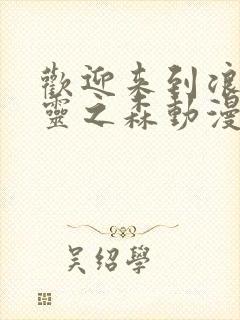 歡迎来到浪
靈之森動漫
吴绍學